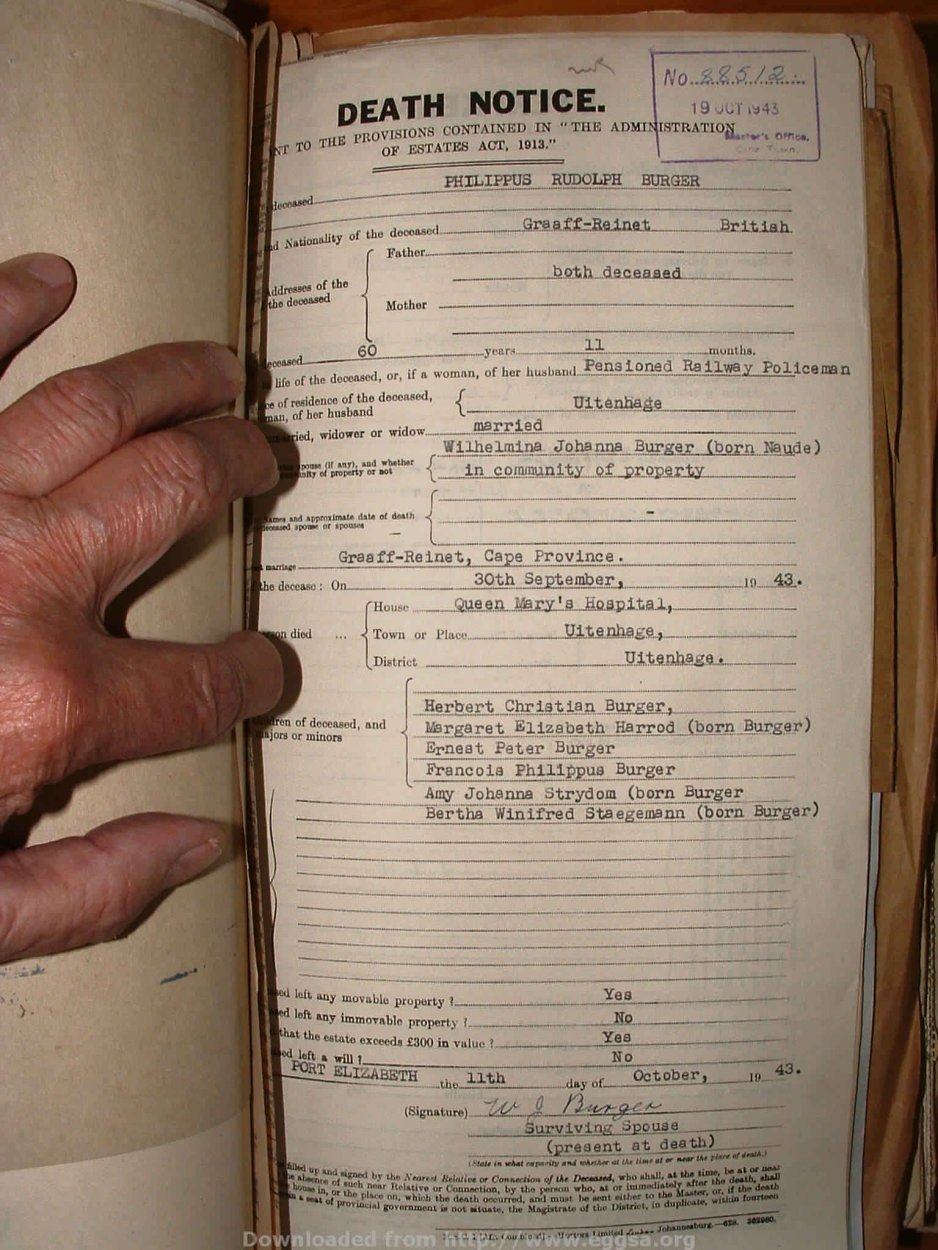 No. 88512.
19 OCT 1943
Master's Office,
DEATH NOTICE.
NT TO THE PROVISIONS CONTAINED IN "THE ADMINISTRATION
OF ESTATES ACT, 1913."
PHILIPPUS RUDOLPH BURGER
deceased
nd Nationality of the deceased Graaff-Reinet British
Father
Addresses of the
the deceased
both deceased
Mother
eceased 60 years 11 months.
life of the deceased, or, if a woman, of her husband Pensioned Railway Policeman
ce of residence of the deceased,
man, of her husband
Uitenhage
married, widower or widow married
Wilhelmina Johanna Burger (born Naude)
spouse (if any), and whether
nity of property or not
in community of property
names and approximate date of death
deceased spouse or spouses
-
Graaff-Reinet, Cape Province.
marriage
the decease : On 30th September, 19 43.
House Queen Mary's Hospital,
son died ... Town or Place Uitenhage,
District Uitenhage.
Herbert Christian Burger,
ldren of deceased, and
majors or minors
Margaret Elizabeth Harrod (born Burger)
Ernest Peter Burger
Francois Philippus Burger
Amy Johanna Strydom (born Burger
Bertha Winifred Staegemann (born Burger)
sed left any movable property ? Yes
sed left any immovable property ? No
that the estate exceeds £300 in value ? Yes
sed left a will ? No
PORT ELIZABETH the 11th day of October, 19 43.
(Signature) W J Burger
Surviving Spouse
(present at death)
(State in what capacity and whether at the time at or near the place of death.)
filled up and signed by the Nearest Relative or Connection of the Deceased, who shall, at the time, be at or near
he absence of such near Relative or Connection, by the person who, at or immediately after the death, shall
house in, or the place on, which the death occurred, and must be sent either to the Master, or, if the death
n a seat of provincial government is not situate, the Magistrate of the District, in duplicate, within fourteen
Hortors Limited Johannesburg.—628.
Downloaded from http://www.eggsa.org